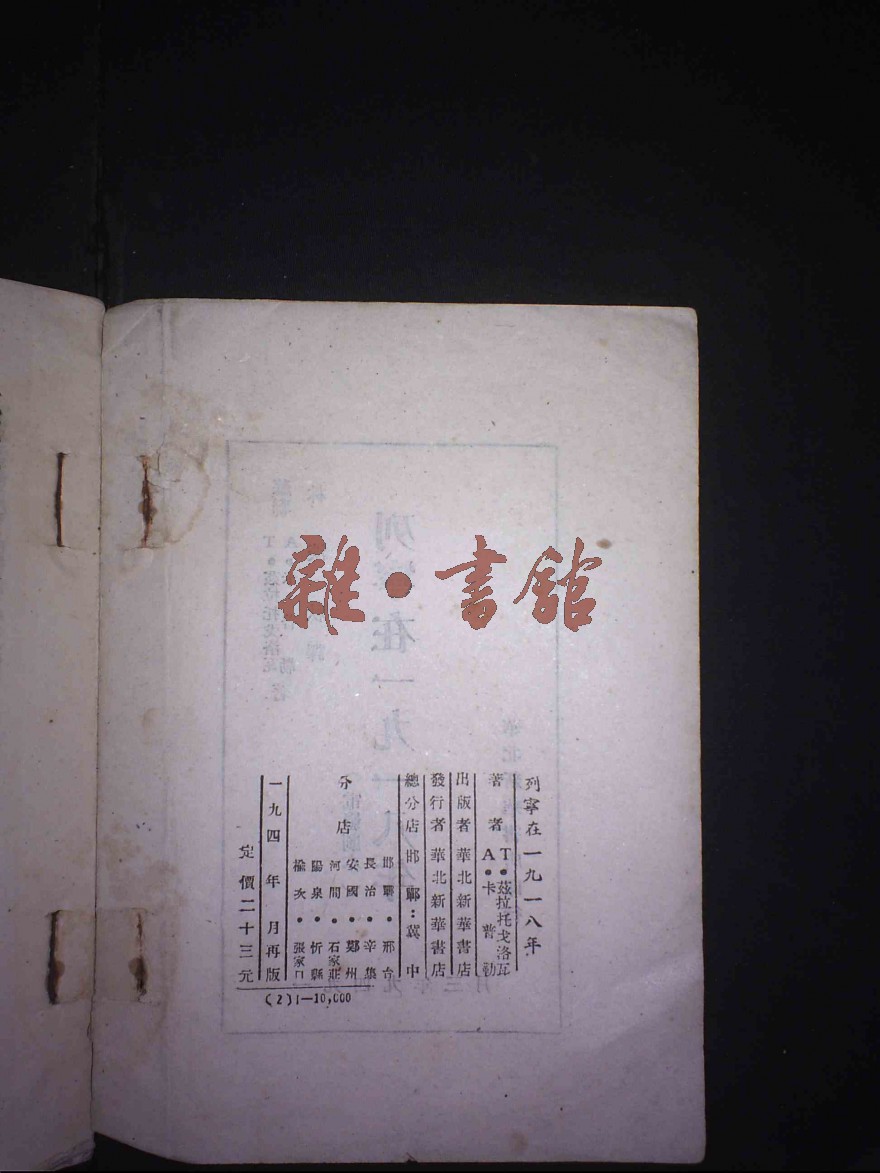 雜·書館
列寧在一九一八年
著者 T·茲拉托戈洛瓦
A·卡普勒
出版者 華北新華書店
發行者 華北新華書店
總分店 邯鄲:冀中
分店
邯鄲·邢台
長治·辛集
安國·鄭州
河間·石家莊
陽泉·忻縣
榆次·張家口
一九四 年 月再版
定價二十三元
(2)1—10,000